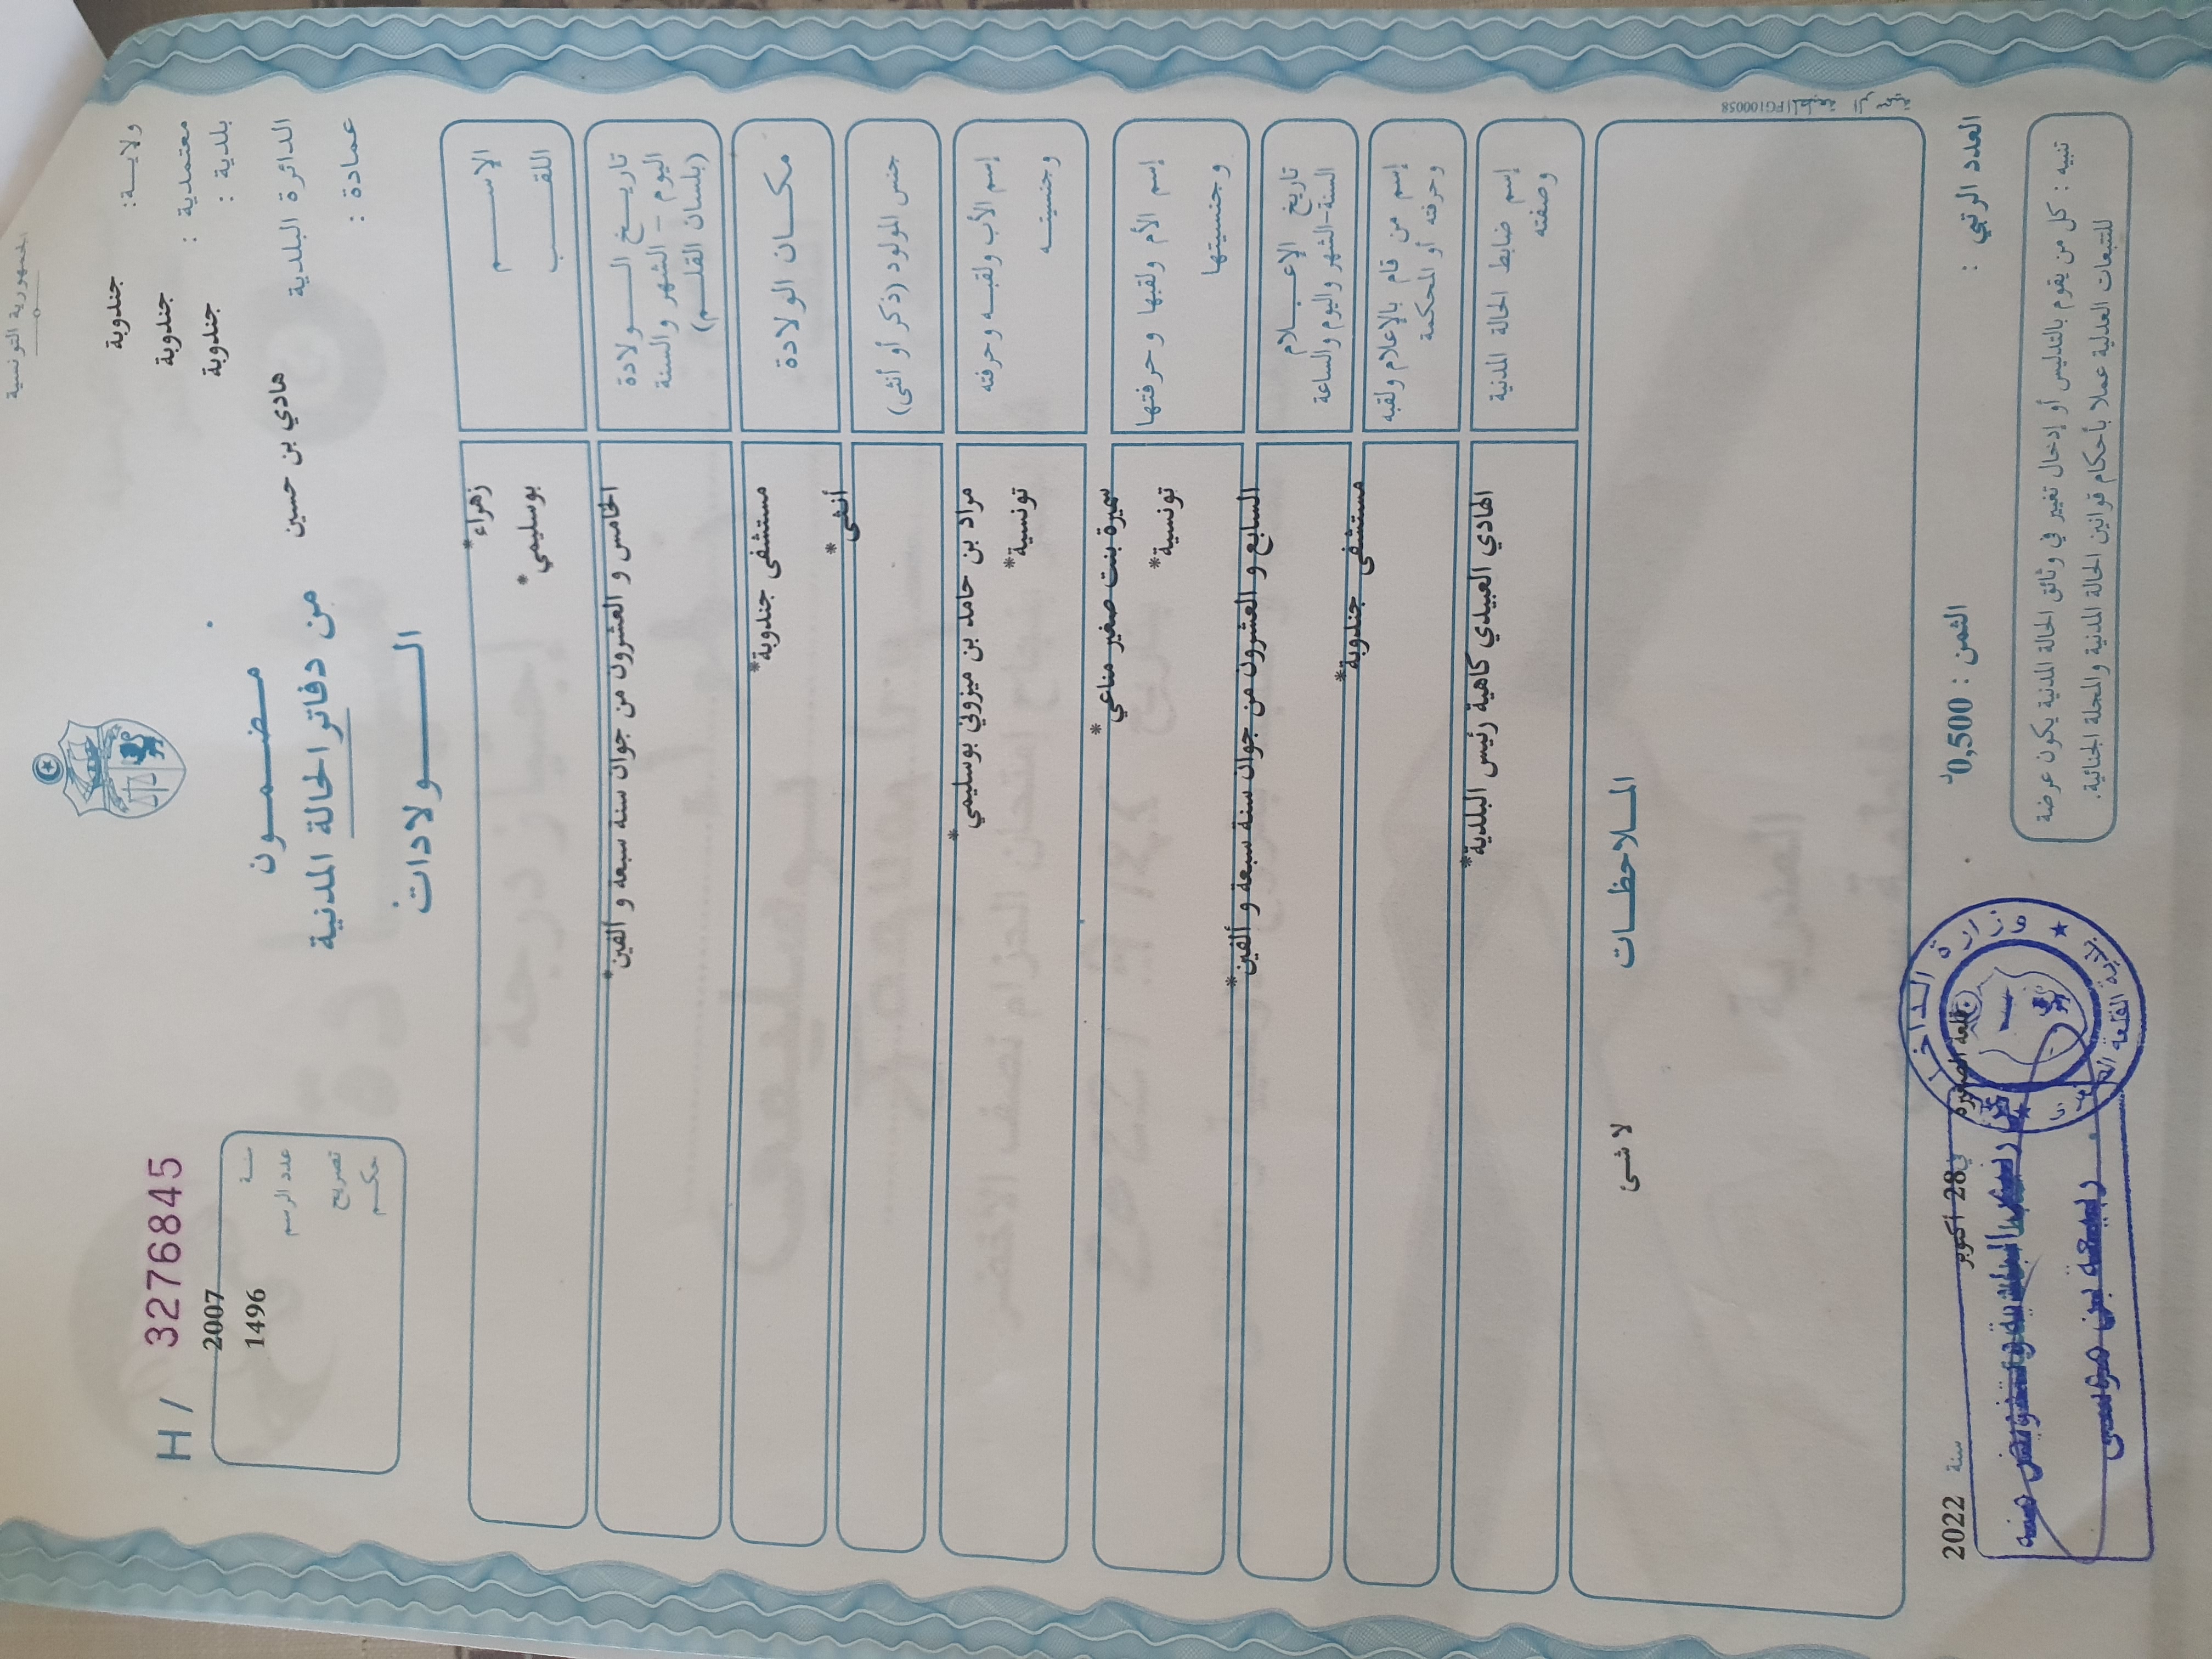 الجمهورية التونسية
ولايـــة: جندوبة
معتمدية : جندوبة
بلدية : جندوبة
الدائرة البلدية هادي بن حسين
عمادة :
مـضـمــون
من دفاتر الحالة المدنية
الـــولادات
H / 32766845
سنـة 2007
عدد الرسم 1496
تصريح
حكم
الإســـــم زهراء*
اللقـــب بوسليمي*
تاريـــخ الــــولادة
اليوم – الشهر والسنة
(بلسان القلـــم)
الخامس و العشرون من جوان سنة سبعة و ألفين*
مكـــان الولادة مستشفى جندوبة*
جنس المولود (ذكر أو أنثى) أنثى*
إسم الأب ولقبـــه وحرفته مراد بن حامد بن ميزوني بوسليمي*
وجنسيتـــه تونسية*
إسم الأم ولقبها وحرفتها سميرة بنت صغير مناعي*
وجنسيتها تونسية*
تاريخ الإعـــلام
السنة-الشهر واليوم والساعة
السابع و العشرون من جوان سنة سبعة و ألفين*
إسم من قام بالإعلام ولقبه
وحرفته أو المحكمة
مستشفى جندوبة*
إسم ضابط الحالة المدنية
وصفته
الهادي العبيدي كاهية رئيس البلدية*
المـــلاحظـــات
لا شئ
PG100058
العدد الرتبي :
الثمن : 0,500د
قلعة الصغيرة في 28 أكتوبر سنة 2022
تنبيه : كل من يقوم بالتدليس أو إدخال تغيير في وثائق الحالة المدنية يكون عرضة
للتتبعات العدلية عملا بأحكام قوانين الحالة المدنية والمجلة الجنائية.
عن رئيس البلدية وبتفويض منه
ربيعة بن موسى